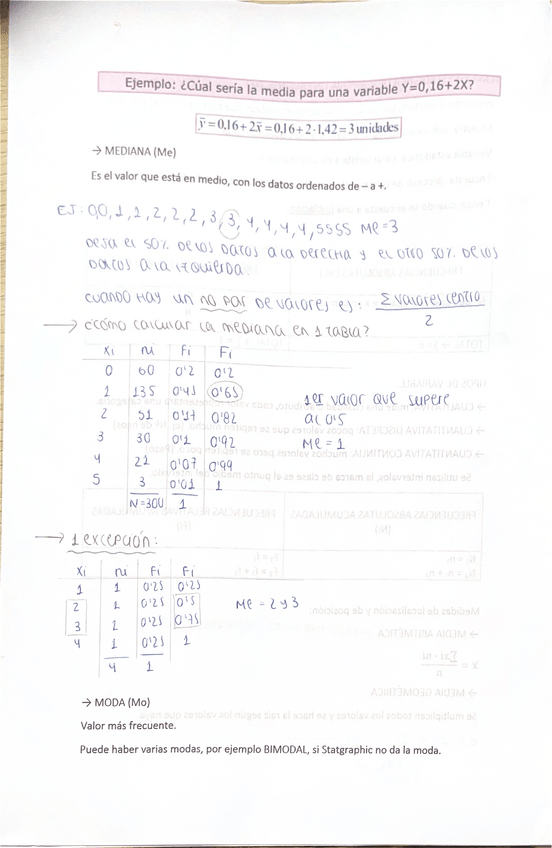 Ejemplo: ¿Cúal sería la media para una variable Y=0,16+2X?
ȳ = 0,16 + 2x̄ = 0,16 + 2·1,42 = 3 unidades
→ MEDIANA (Me)
Es el valor que está en medio, con los datos ordenados de – a +.
EJ: 0,0, 1, 1, 2, 2, 2, 3, 3, 4, 4, 4, 4, 5 5 5 5 Me = 3
DEJA EL 50% DE LOS DATOS A LA DERECHA Y EL OTRO 50% DE LOS
DATOS A LA IZQUIERDA.
CUANDO HAY UN NO PAR DE VALORES ES: Σ valores centro / 2
→ ¿CÓMO CALCULAR LA MEDIANA EN 1 TABLA?
Xi ni fi Fi
0 60 0'2 0'2
1 135 0'45 0'65
2 51 0'17 0'82
3 30 0'1 0'92
4 21 0'07 0'99
5 3 0'01 1
N=300 1
1er VALOR QUE SUPERE
AL 0'5
Me = 1
→ 1 EXCEPCIÓN:
Xi ni Fi Fi
1 1 0'25 0'25
2 1 0'25 0'5
3 1 0'25 0'75
4 1 0'25 1
4 1
Me = 2 y 3
→ MODA (Mo)
Valor más frecuente.
Puede haber varias modas, por ejemplo BIMODAL, si Statgraphic no da la moda.